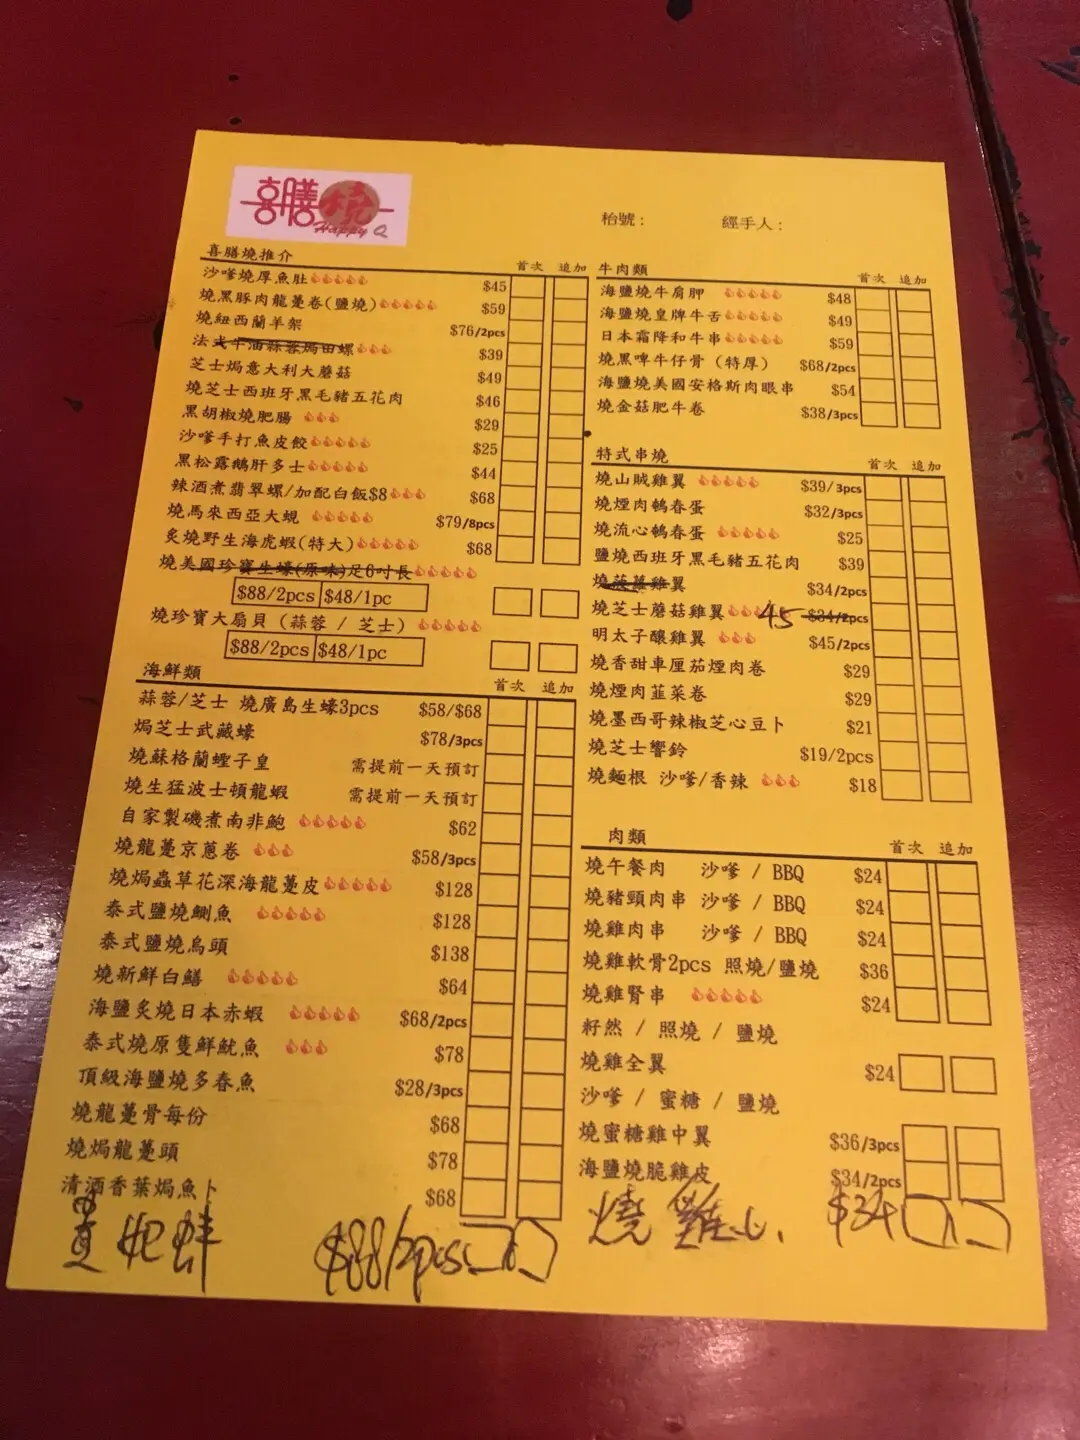 喜膳燒
Happy Q
枱號： 經手人：
喜膳燒推介 首次 追加
沙嗲燒厚魚肚 $45
燒黑豚肉龍躉卷(鹽燒) $59
燒紐西蘭羊架 $76/2pcs
法式牛油蒜蓉焗田螺 $39
芝士焗意大利大蘑菇 $49
燒芝士西班牙黑毛豬五花肉 $46
黑胡椒燒肥腸 $29
沙嗲手打魚皮餃 $25
黑松露鵝肝多士 $44
辣酒煮翡翠螺/加配白飯$8 $68
燒馬來西亞大蜆 $79/8pcs
炙燒野生海虎蝦(特大) $68
燒美國珍寶生蠔(原味)足6吋長
$88/2pcs $48/1pc
燒珍寶大扇貝 (蒜蓉 / 芝士)
$88/2pcs $48/1pc
海鮮類 首次 追加
蒜蓉/芝士 燒廣島生蠔3pcs $58/$68
焗芝士武藏蠔 $78/3pcs
燒蘇格蘭蟶子皇 需提前一天預訂
燒生猛波士頓龍蝦 需提前一天預訂
自家製磯煮南非鮑 $62
燒龍躉京蔥卷 $58/3pcs
燒焗蟲草花深海龍躉皮 $128
泰式鹽燒鰂魚 $128
泰式鹽燒烏頭 $138
燒新鮮白鱔 $64
海鹽炙燒日本赤蝦 $68/2pcs
泰式燒原隻鮮魷魚 $78
頂級海鹽燒多春魚 $28/3pcs
燒龍躉骨每份 $68
燒焗龍躉頭 $78
清酒香葉焗魚卜 $68
貴妃蚌 $88/2pcs
牛肉類 首次 追加
海鹽燒牛肩胛 $48
海鹽燒皇牌牛舌 $49
日本霜降和牛串 $59
燒黑啤牛仔骨 (特厚) $68/2pcs
海鹽燒美國安格斯肉眼串 $54
燒金菇肥牛卷 $38/3pcs
特式串燒 首次 追加
燒山賊雞翼 $39/3pcs
燒煙肉鵪春蛋 $32/3pcs
燒流心鵪春蛋 $25
鹽燒西班牙黑毛豬五花肉 $39
燒菠蘿雞翼 $34/2pcs
燒芝士蘑菇雞翼 45 $34/2pcs
明太子釀雞翼 $45/2pcs
燒香甜車厘茄煙肉卷 $29
燒煙肉韮菜卷 $29
燒墨西哥辣椒芝心豆卜 $21
燒芝士響鈴 $19/2pcs
燒麵根 沙嗲/香辣 $18
肉類 首次 追加
燒午餐肉 沙嗲 / BBQ $24
燒豬頸肉串 沙嗲 / BBQ $24
燒雞肉串 沙嗲 / BBQ $24
燒雞軟骨2pcs 照燒/鹽燒 $36
燒雞腎串 $24
籽然 / 照燒 / 鹽燒
燒雞全翼 $24
沙嗲 / 蜜糖 / 鹽燒
燒蜜糖雞中翼 $36/3pcs
海鹽燒脆雞皮 $34/2pcs
燒雞心. $34